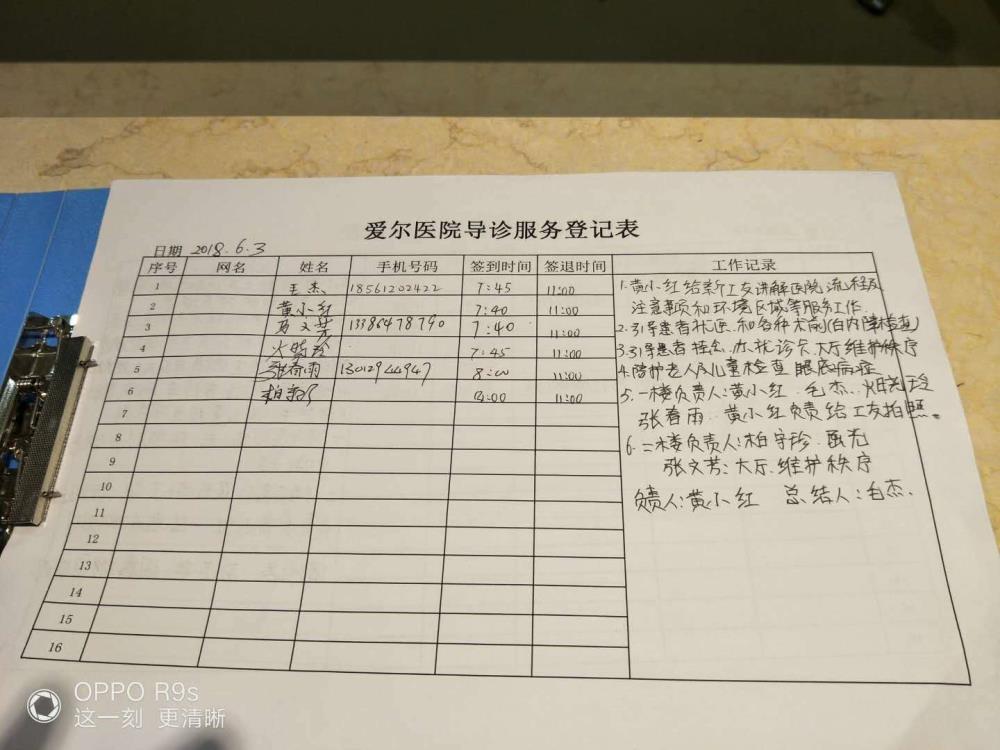 爱尔医院导诊服务登记表
日期 2018.6.3
序号 网名 姓名 手机号码 签到时间 签退时间 工作记录
1 王杰 18561202422 7:45 11:00
2 黄小红 7:40 11:00
3 13386478790 7:40 11:00
4 7:45 11:00
5 张春雨 13012944947 8:00 11:00
6 8:00 11:00
7
8
9
10
11
12
13
14
15
16
1.黄小红给新工友讲解医院流程及
注意事项和环境区域等服务工作.
2.引导患者 和各种术前(白内障检查)
3.引导患者挂念. 诊大厅维护秩序
4.陪护老人及儿童检查眼底病症
5.一楼负责人:黄小红. 毛杰.
张春雨. 黄小红负责给工友拍照.
6.二楼负责人:柏守珍.
张文芳:大厅.维护秩序
负责人:黄小红 总结人:毛杰.
OPPO R9s
这一刻 更清晰